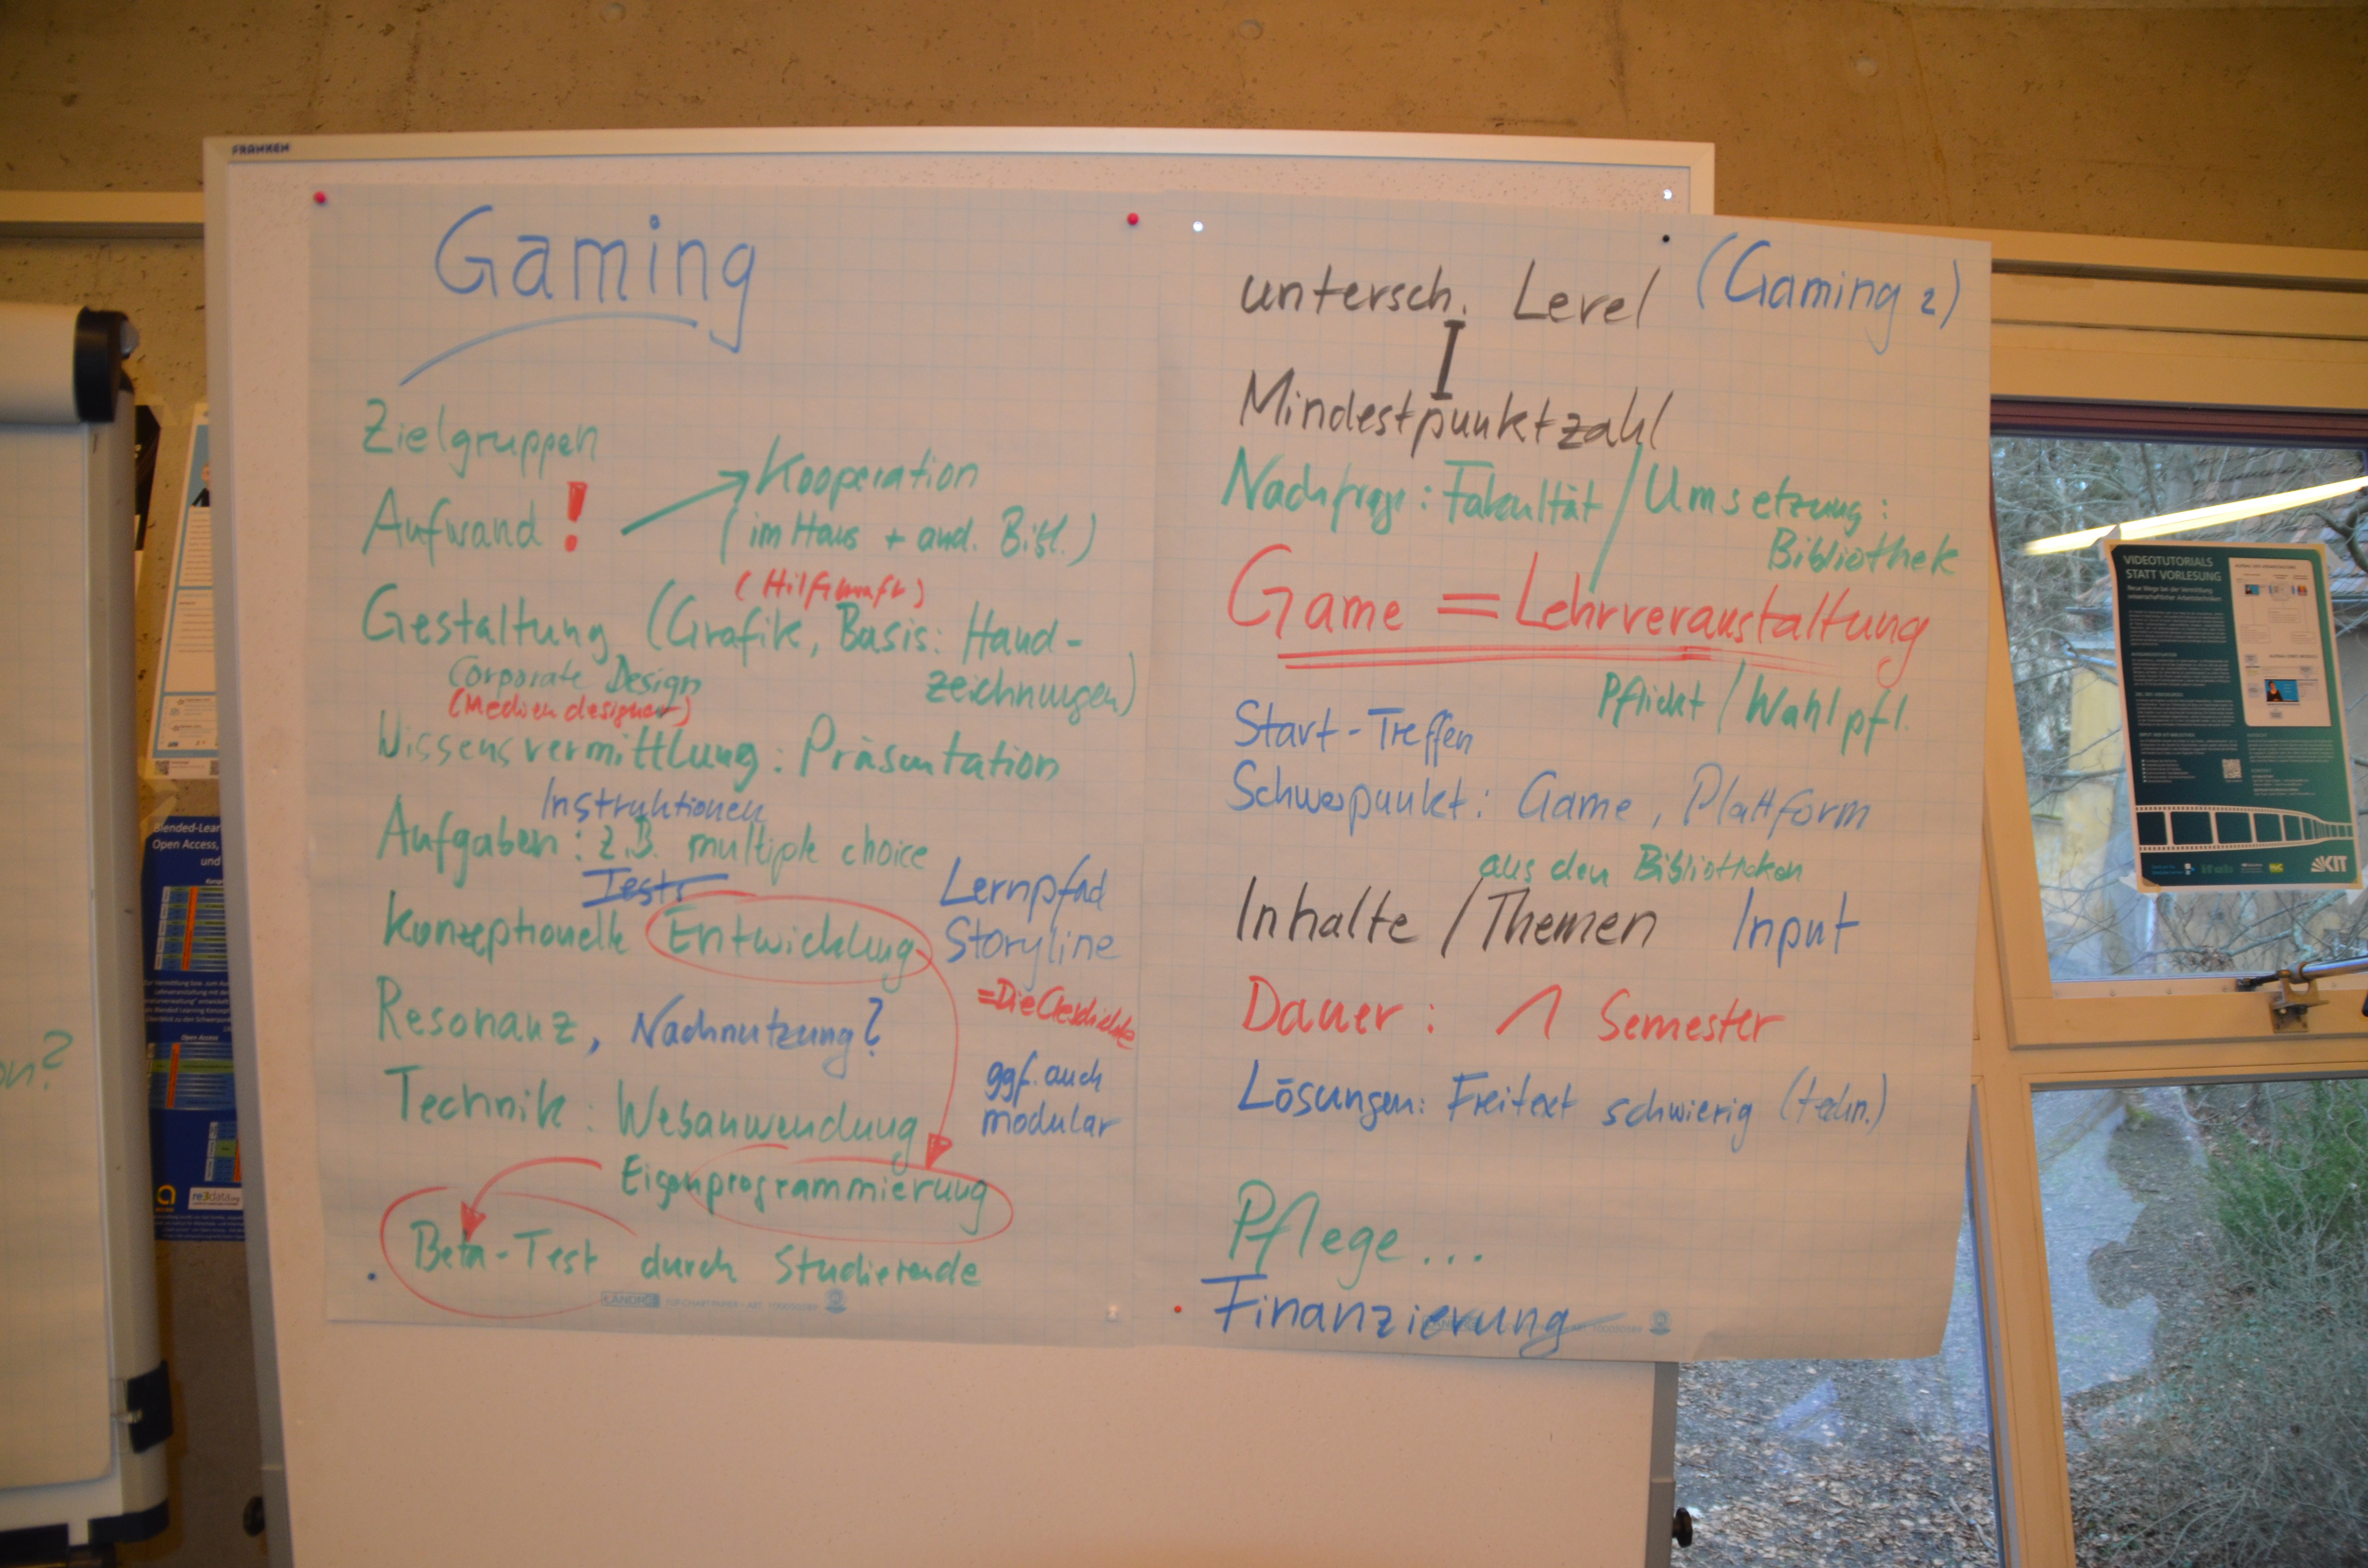 FRANKEN
Gaming
Zielgruppen
Aufwand! Kooperation
(im Haus + and. Bibl.)
(Hilfskraft)
Gestaltung (Grafik, Basis: Hand-
zeichnungen)
Corporate Design
(Mediendesigner)
Wissensvermittlung: Präsentation
Instruktionen
Aufgaben: z.B. multiple choice
Tests
Konzeptionelle Entwicklung
Lernpfad
Storyline
=Die Geschichte
ggf. auch
modular
Resonanz, Nachnutzung?
Technik: Webanwendung
Eigenprogrammierung
Beta-Test durch Studierende
LANDRÉ
untersch. Level (Gaming 2)
Mindestpunktzahl
Nachfrage: Fakultät / Umsetzung:
Bibliothek
Game = Lehrveranstaltung
Pflicht / Wahlpfl.
Start-Treffen
Schwerpunkt: Game, Plattform
aus den Bibliotheken
Inhalte / Themen Input
Dauer: 1 Semester
Lösungen: Freitext schwierig (techn.)
Pflege...
Finanzierung
VIDEOTUTORIALS
STATT VORLESUNG
Neue Wege bei der Vermittlung
wissenschaftlicher Arbeitstechniken
KIT
Blended-Lear
Open Access,
und
Open Access
re3data.org
on?